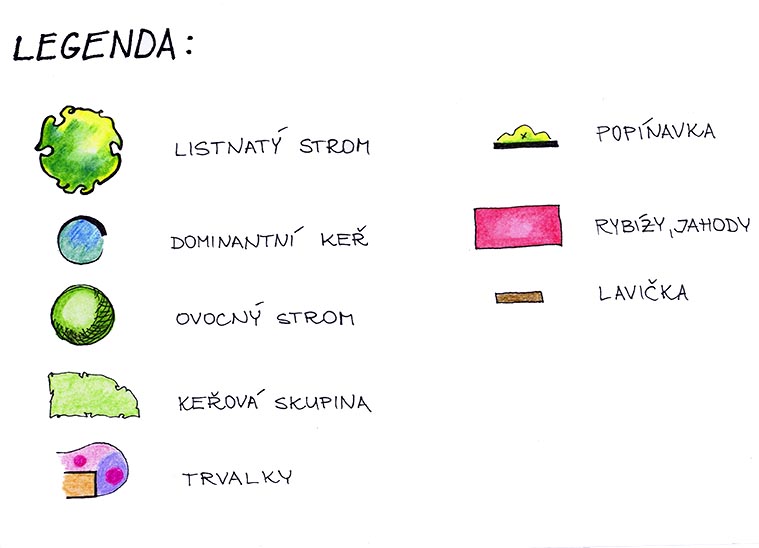 LEGENDA:
LISTNATÝ STROM
DOMINANTNÍ KEŘ
OVOCNÝ STROM
KEŘOVÁ SKUPINA
TRVALKY
POPÍNAVKA
RYBÍZY, JAHODY
LAVIČKA